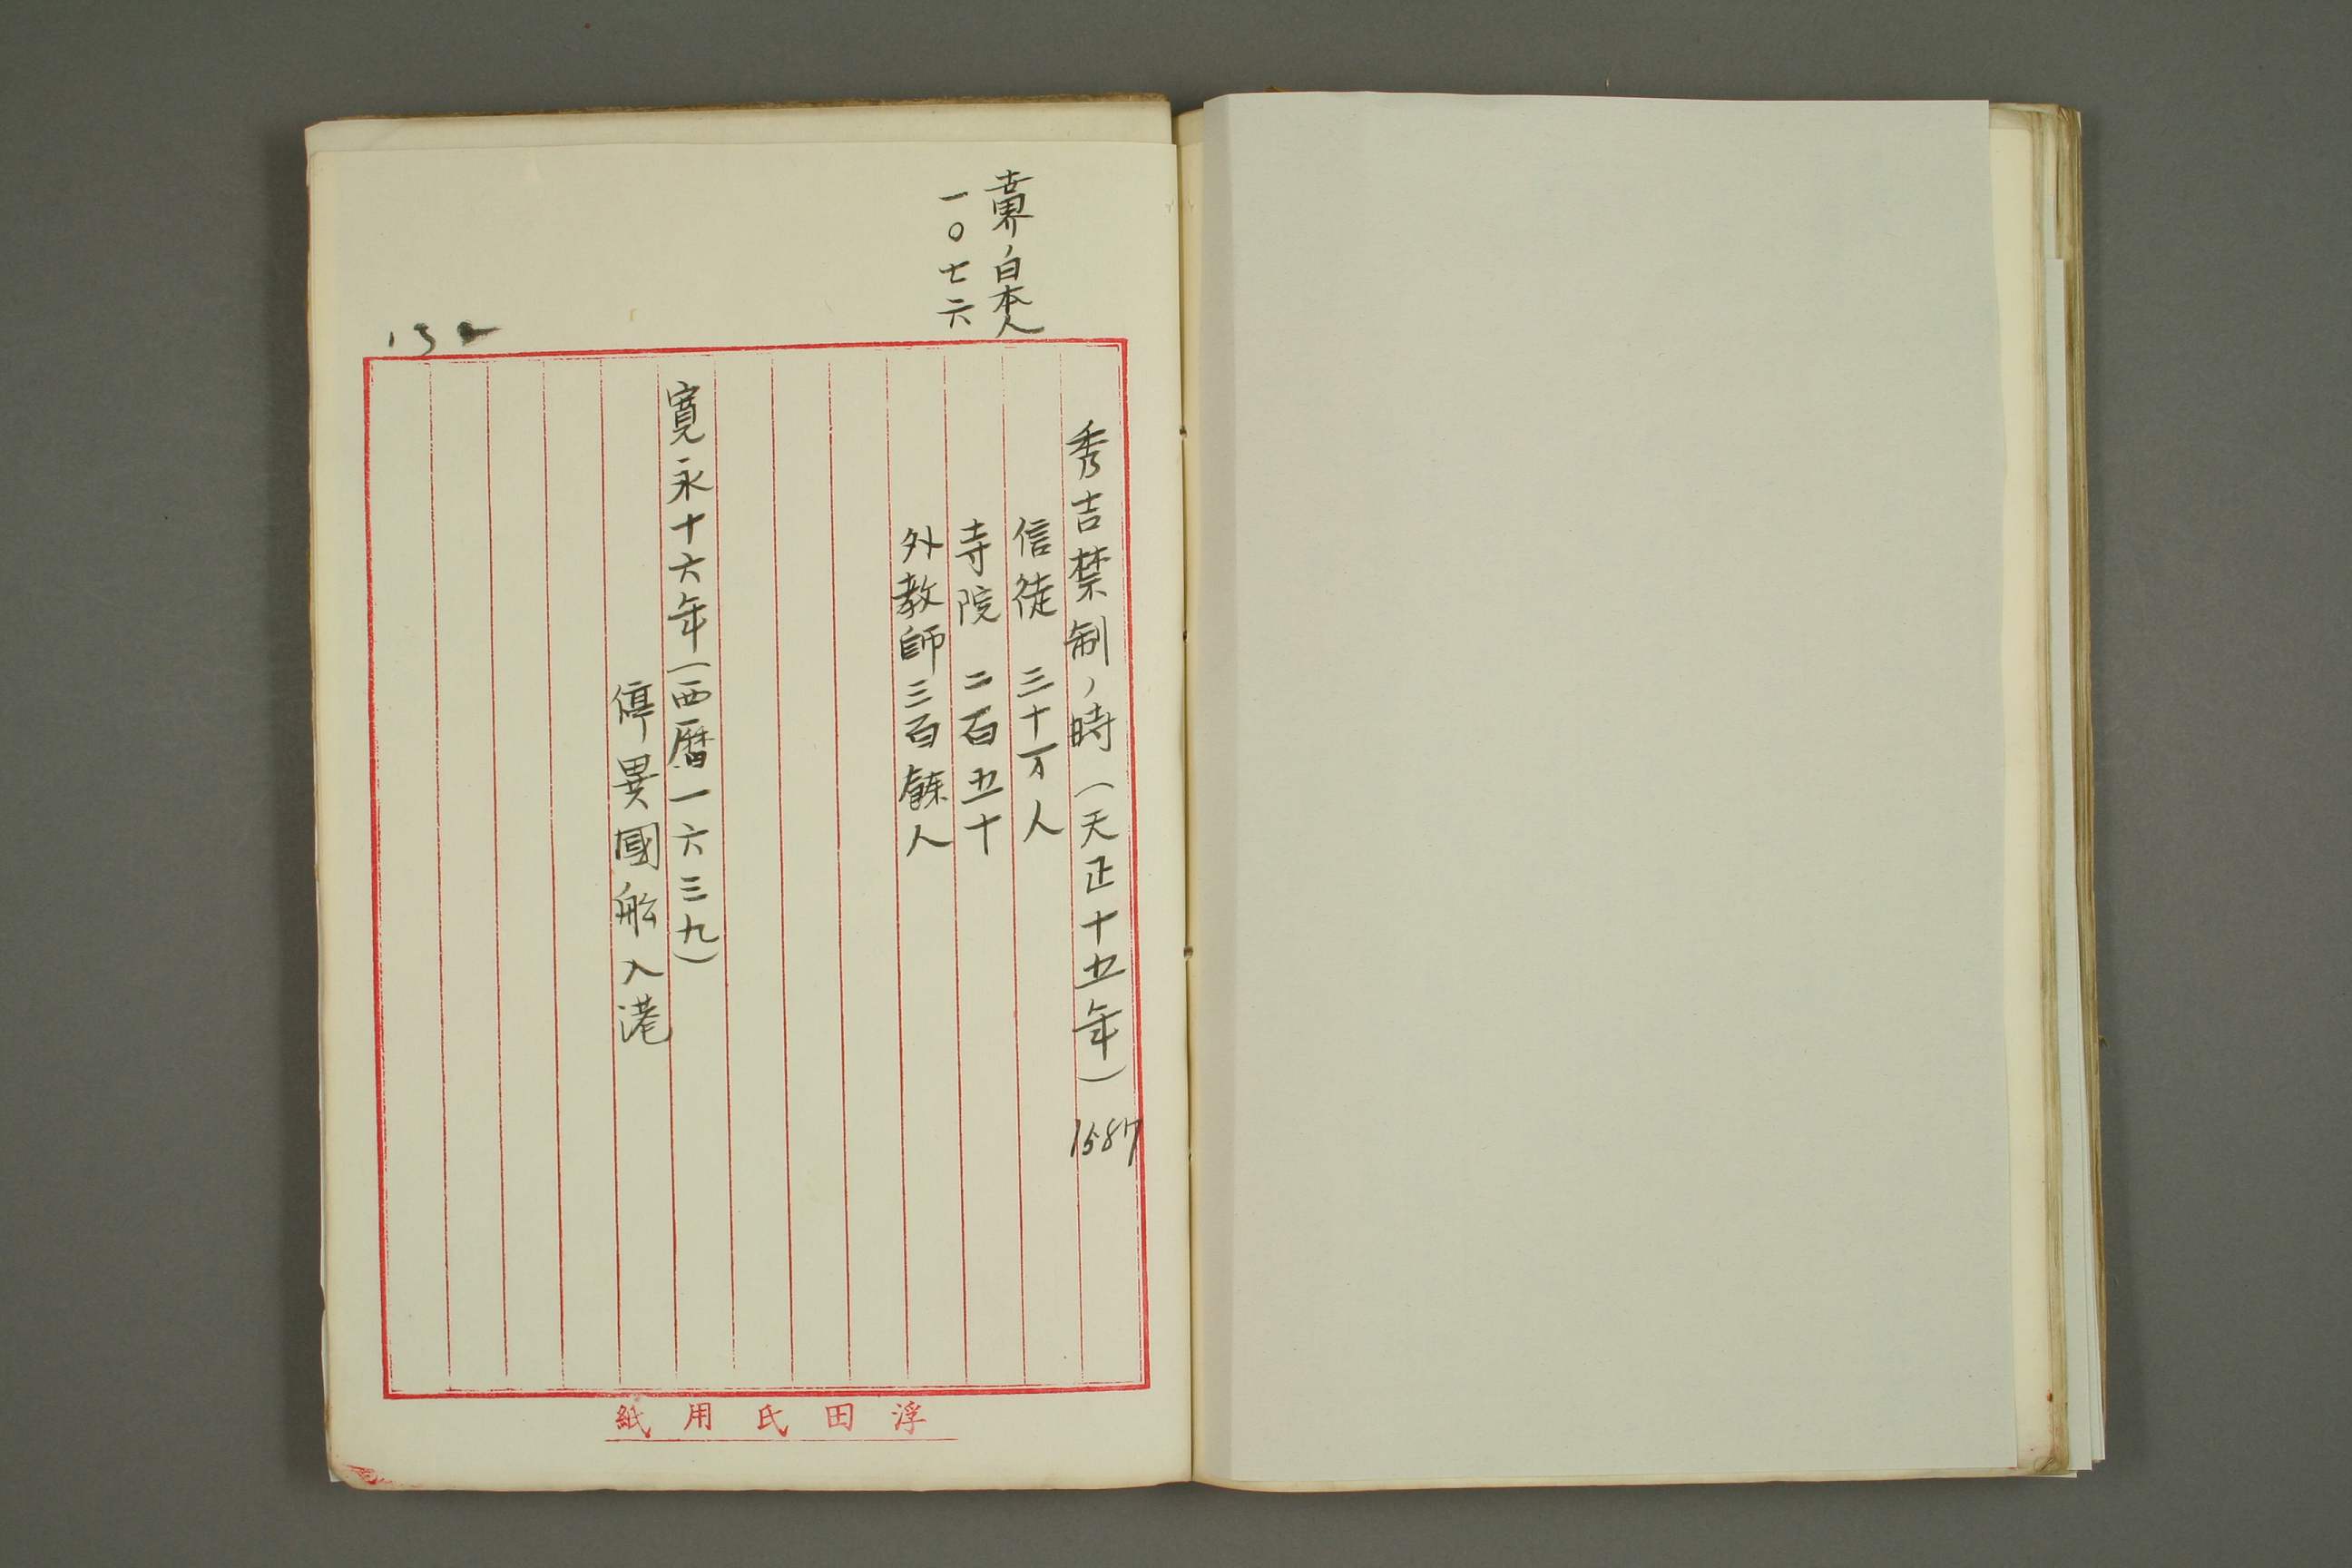 世界ノ日本人
一〇七六
132
秀吉禁制ノ時(天正十五年) 1587
信徒 三十万人
寺院 二百五十
外教師三百餘人
寛永十六年(西暦一六三九)
停異國舩入港
浮田氏用紙